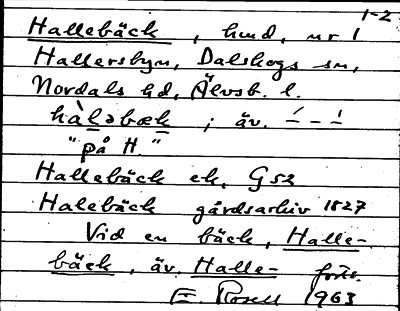 1-2
Hallebäck, hmd, nr 1
Hallersbyn, Dalskogs sn,
Nordals hd, Älvsb. l.
hàl̲əbæk ; äv. –́ – –̀
"på H."
Hallebäck ek, G52
Halebäck gårdsarkiv 1827
Vid en bäck, Halle-
bäck, äv. Halle-
E. Rosell 1963